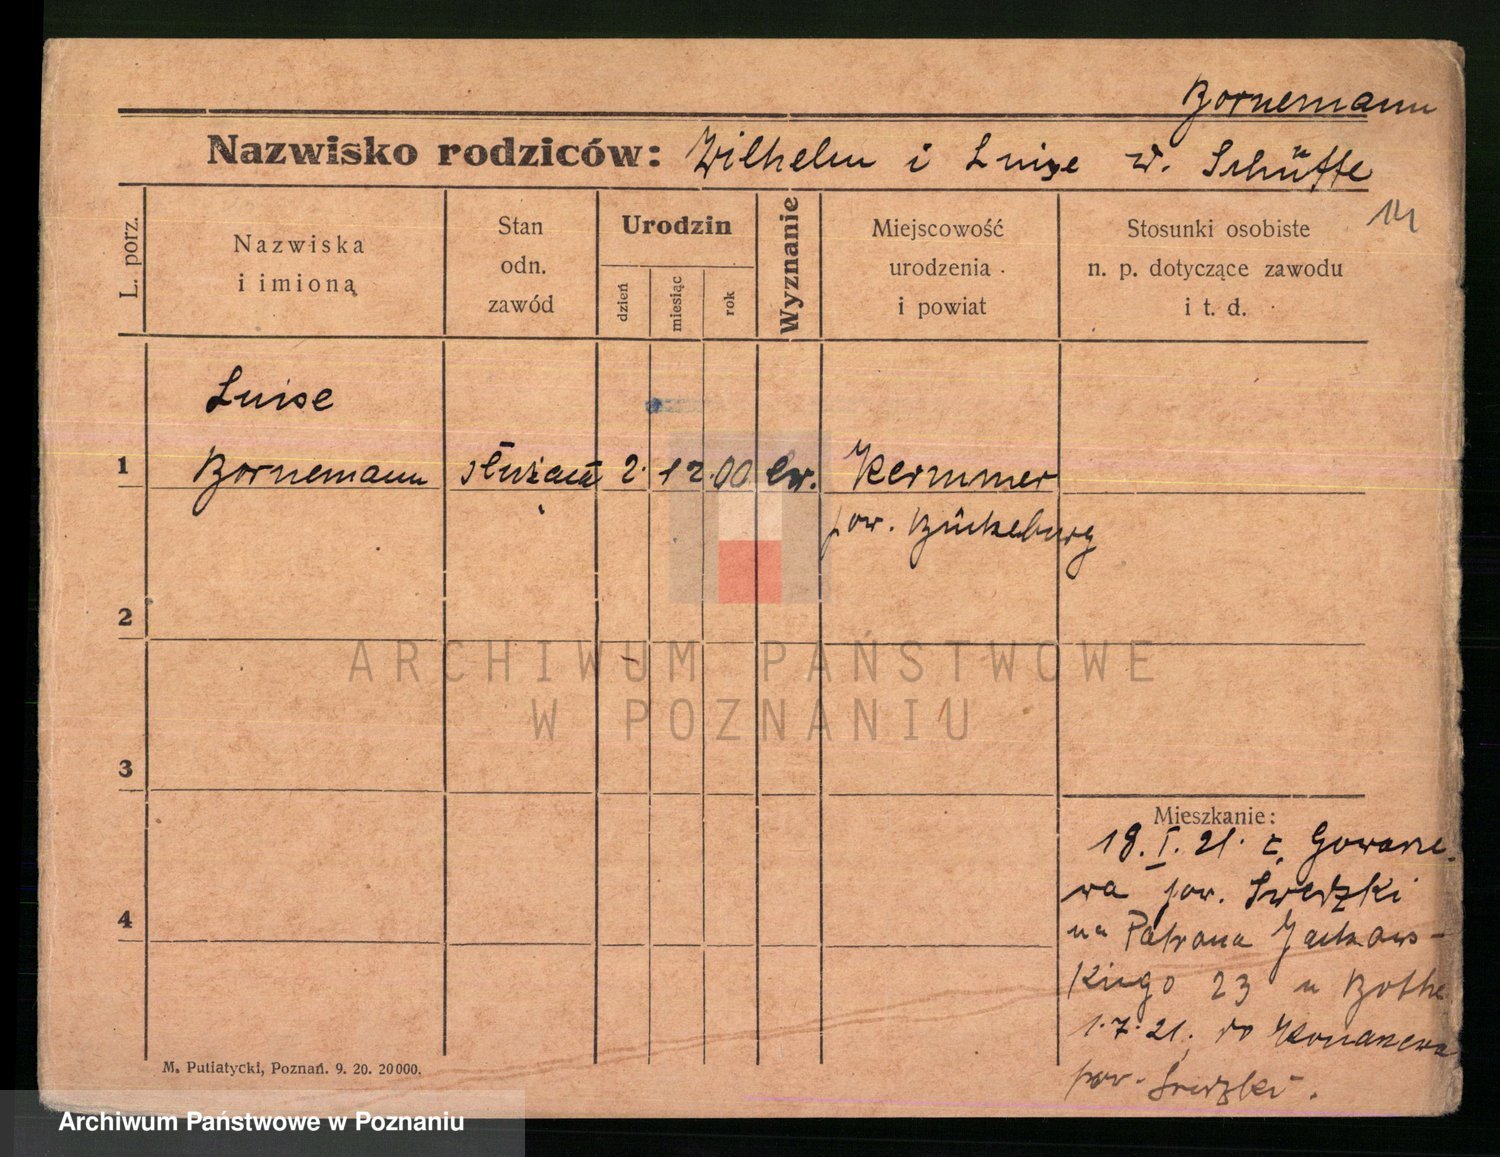 Bornemann
Nazwisko rodziców: Wilhelm i Luise z d. Schütte
14
L. porz.
Nazwiska
i imiona
Stan
odn.
zawód
Urodzin
dzień
miesiąc
rok
Wyznanie
Miejscowość
urodzenia
i powiat
Stosunki osobiste
n. p. dotyczące zawodu
i t. d.
Luise
1 Bornemann służąca 2. 12. 00. ew.
pow. Bückeburg
2
3
4
Mieszkanie:
18. I. 21. z
pow. Średzki
na Patrona Jackows-
kiego 23 u Bothe
1.7.21. do
pow. Średzki.
M. Putiatycki, Poznań. 9. 20. 20000.
ARCHIWUM PAŃSTWOWE
W POZNANIU
Archiwum Państwowe w Poznaniu